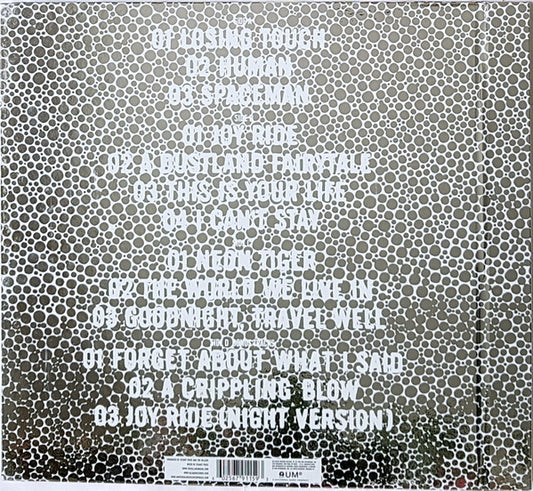 01 LOSING TOUCH
02 HUMAN
03 SPACEMAN
01 JOY RIDE
02 A DUSTLAND FAIRYTALE
03 THIS IS YOUR LIFE
04 I CAN'T STAY
01 NEON TIGER
02 THE WORLD WE LIVE IN
03 GOODNIGHT, TRAVEL WELL
BONUS TRACKS
01 FORGET ABOUT WHAT I SAID
02 A CRIPPLING BLOW
03 JOY RIDE (NIGHT VERSION)
UM